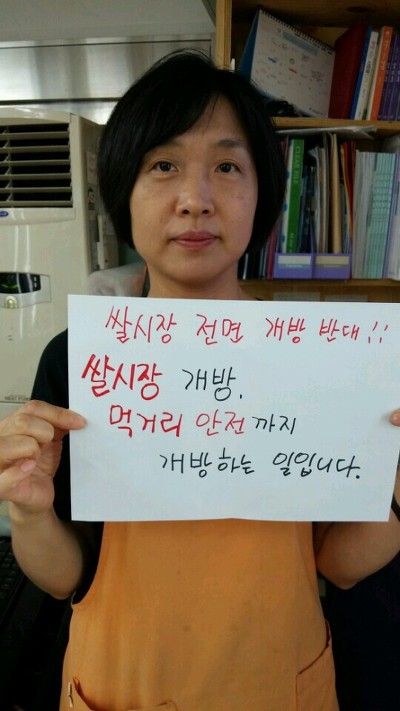 쌀시장 전면 개방 반대!!
쌀시장 개방.
먹거리 안전까지
개방하는 일입니다.